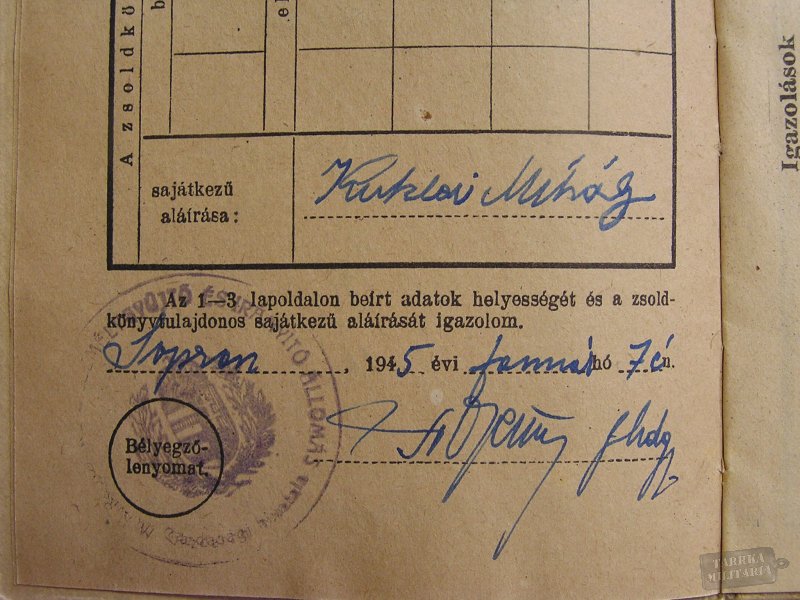 A zsoldkö
b
el
Igazolások
sajátkezű
aláírása:
Kuklai Mihály
Az 1—3 lapoldalon beírt adatok helyességét és a zsold-
könyvtulajdonos sajátkezű aláírását igazolom.
Sopron, 1945 évi január hó 7 én.
Bélyegző-
lenyomat.
ÁLLOMÁS
TARRKA
MILITARIA